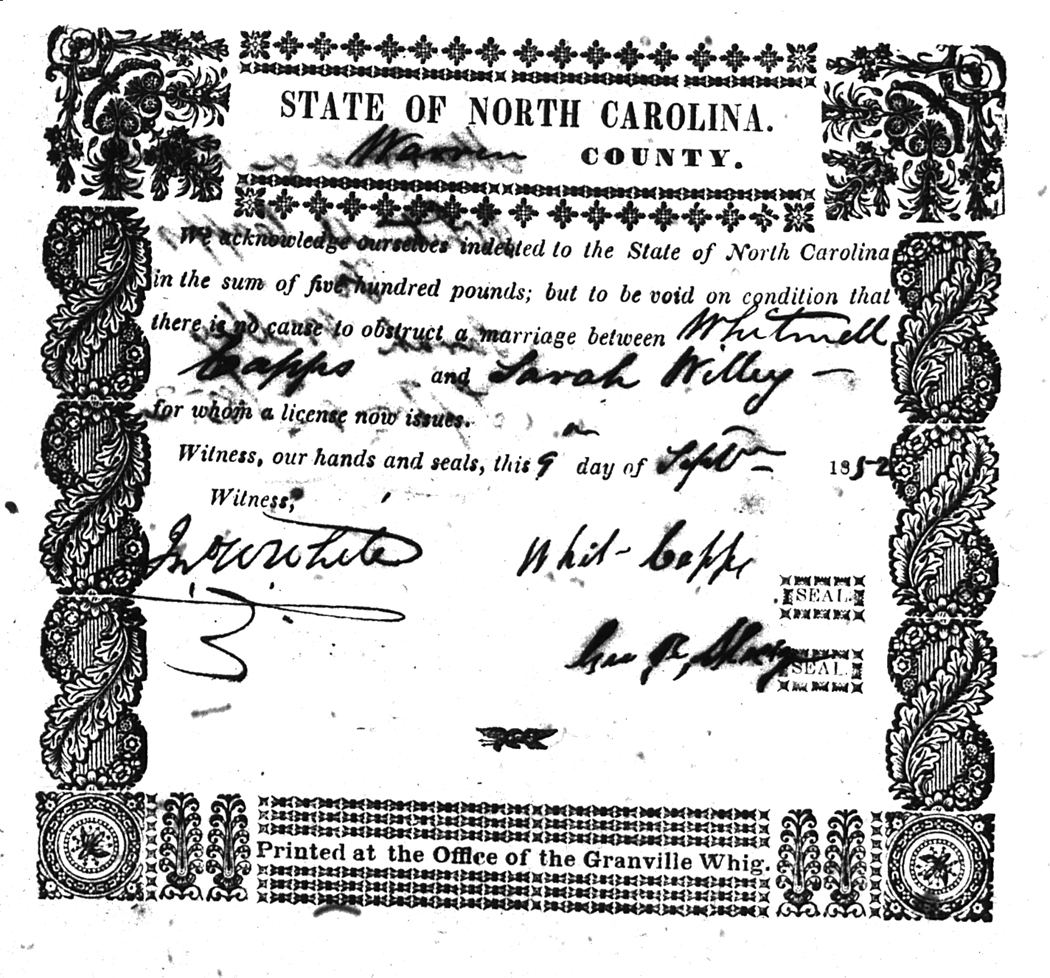 STATE OF NORTH CAROLINA.
Warren COUNTY.
We acknowledge ourselves indebted to the State of North Carolina
in the sum of five hundred pounds; but to be void on condition that
there is no cause to obstruct a marriage between Whitmell
Capps and Sarah Willey —
for whom a license now issues.
Witness, our hands and seals, this 9 day of Septbr 1852
Witness,
Jno W White
Whit- Capps
SEAL.
Geo R,
SEAL.
Printed at the Office of the Granville Whig.